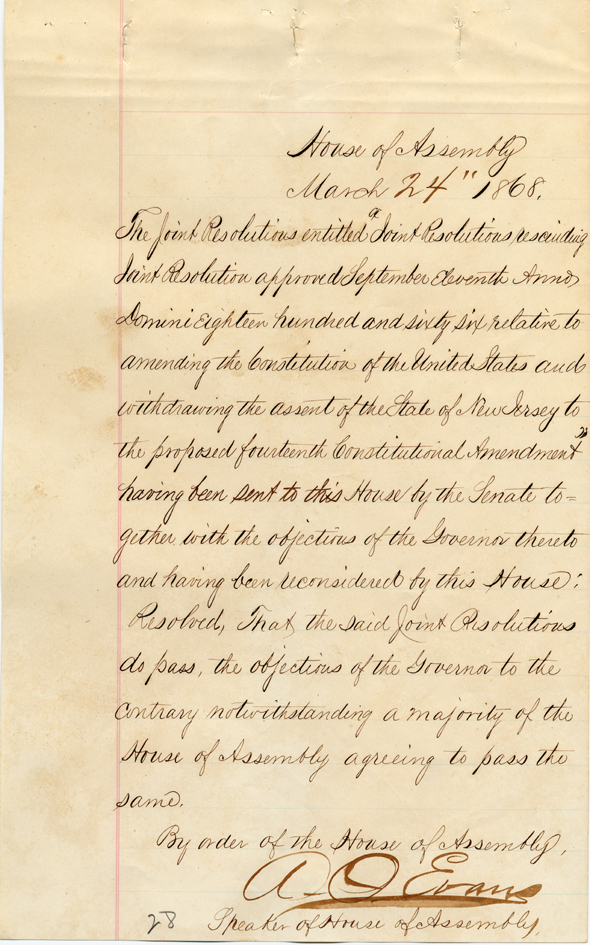 House of Assembly
March 24" 1868.
The Joint Resolutions entitled "Joint Resolutions rescinding
Joint Resolution approved September Eleventh Anno
Domini Eighteen hundred and sixty six relative to
amending the Constitution of the United States and
withdrawing the assent of the State of New Jersey to
the proposed fourteenth Constitutional Amendment"
having been sent to this House by the Senate to=
gether with the objections of the Governor thereto
and having been reconsidered by this House:
Resolved, That the said Joint Resolutions
do pass, the objections of the Governor to the
contrary notwithstanding a majority of the
House of Assembly agreeing to pass the
same.
By order of the House of Assembly,
A. O. Evans
Speaker of House of Assembly.
28